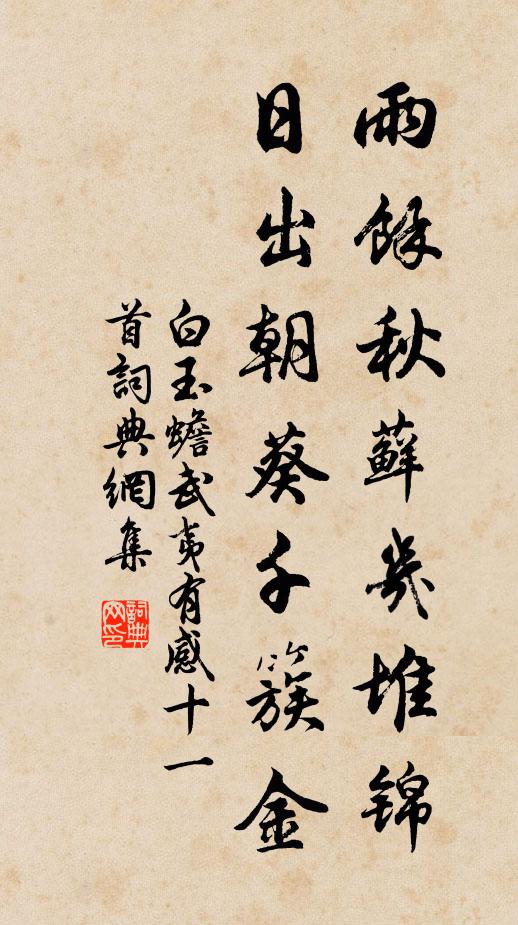 雨餘秋蘚幾堆錦
日出朝葵千簇金
白玉蟾武夷有感十一
首詞典網集
詞典
网印